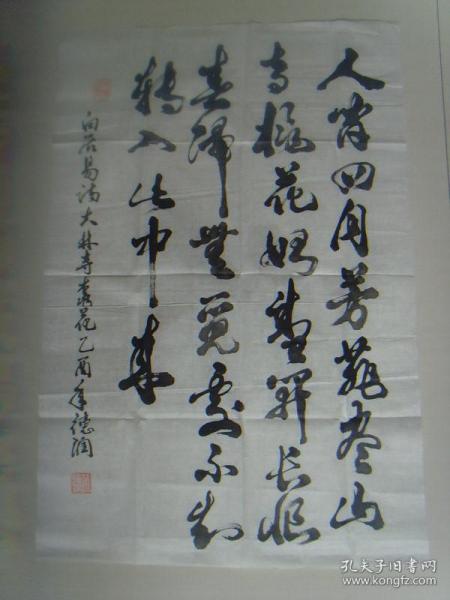 人间四月芳菲尽山
寺桃花始盛開长恨
春歸無覓處不知
轉入此中来
白居易诗大林寺桃花乙酉年德润
孔夫子旧书网
www.kongfz.com